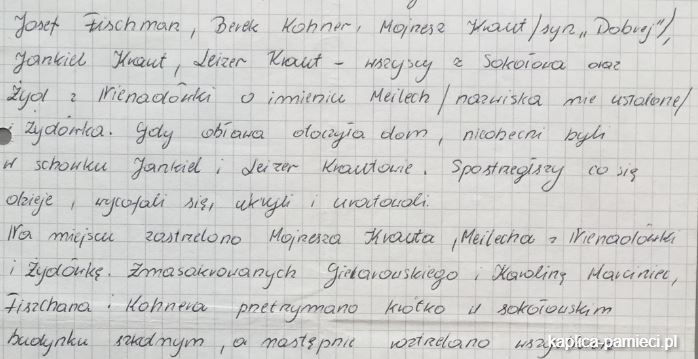 Josef Fischman, Berek Kohner, Mojżesz Kraut /syn „Dobrej"/,
Jankiel Kraut, Leizer Kraut - wszyscy z Sokołowa oraz
Żyd z Nienadówki o imieniu Meilech /nazwiska nie ustalone/
i Żydówka. Gdy obława otoczyła dom, nieobecni byli
w schowku Jankiel i Leizer Krautowie. Spostrzegłszy co się
dzieje, wycofali się, ukryli i uratowali.
Na miejscu zastrzelono Mojżesza Krauta, Meilecha z Nienadówki
i Żydówkę. Zmasakrowanych Gielarowskiego i Karolinę Marciniec,
Fiszchana i Kohnera przetrzymano krótko w sokołowskim
budynku szkolnym, a następnie rozstrzelano
kaplica-pamieci.pl